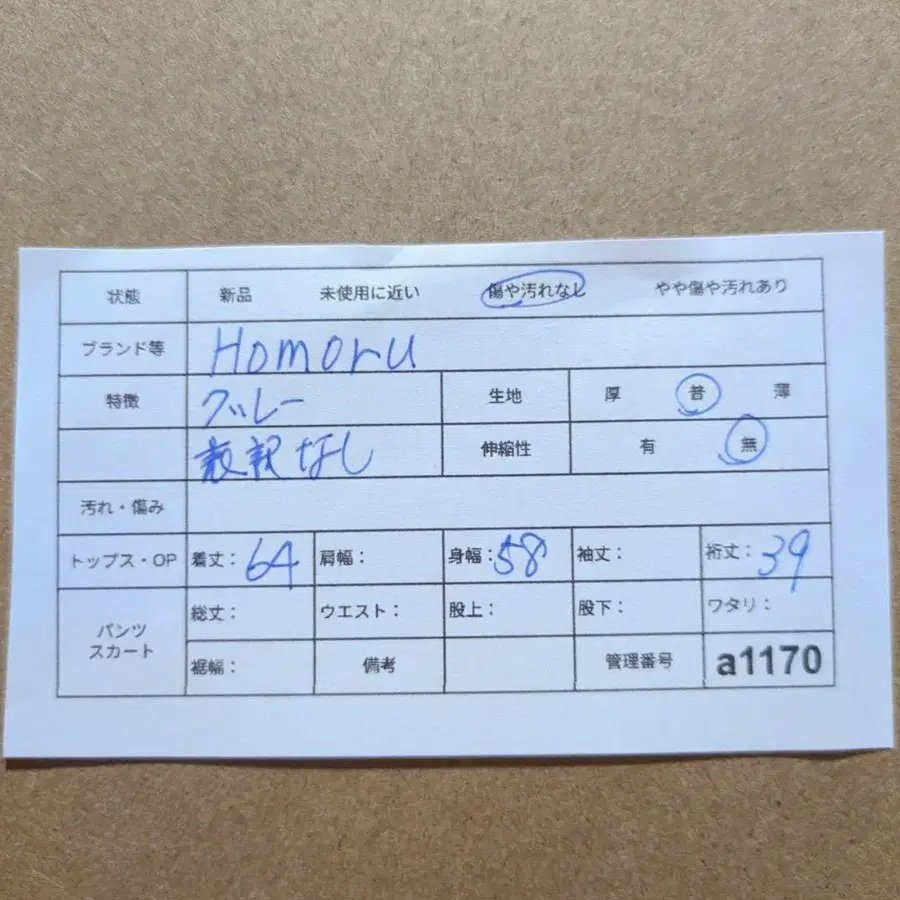 状態 新品 未使用に近い 傷や汚れなし やや傷や汚れあり
ブランド等 Homoru
特徴 グレー 生地 厚 普 薄
なし 伸縮性 有 無
汚れ・傷み
トップス・OP 着丈： 64 肩幅： 身幅： 58 袖丈： 裄丈： 39
パンツ スカート 総丈： ウエスト： 股上： 股下： ワタリ：
裾幅： 備考 管理番号 a1170